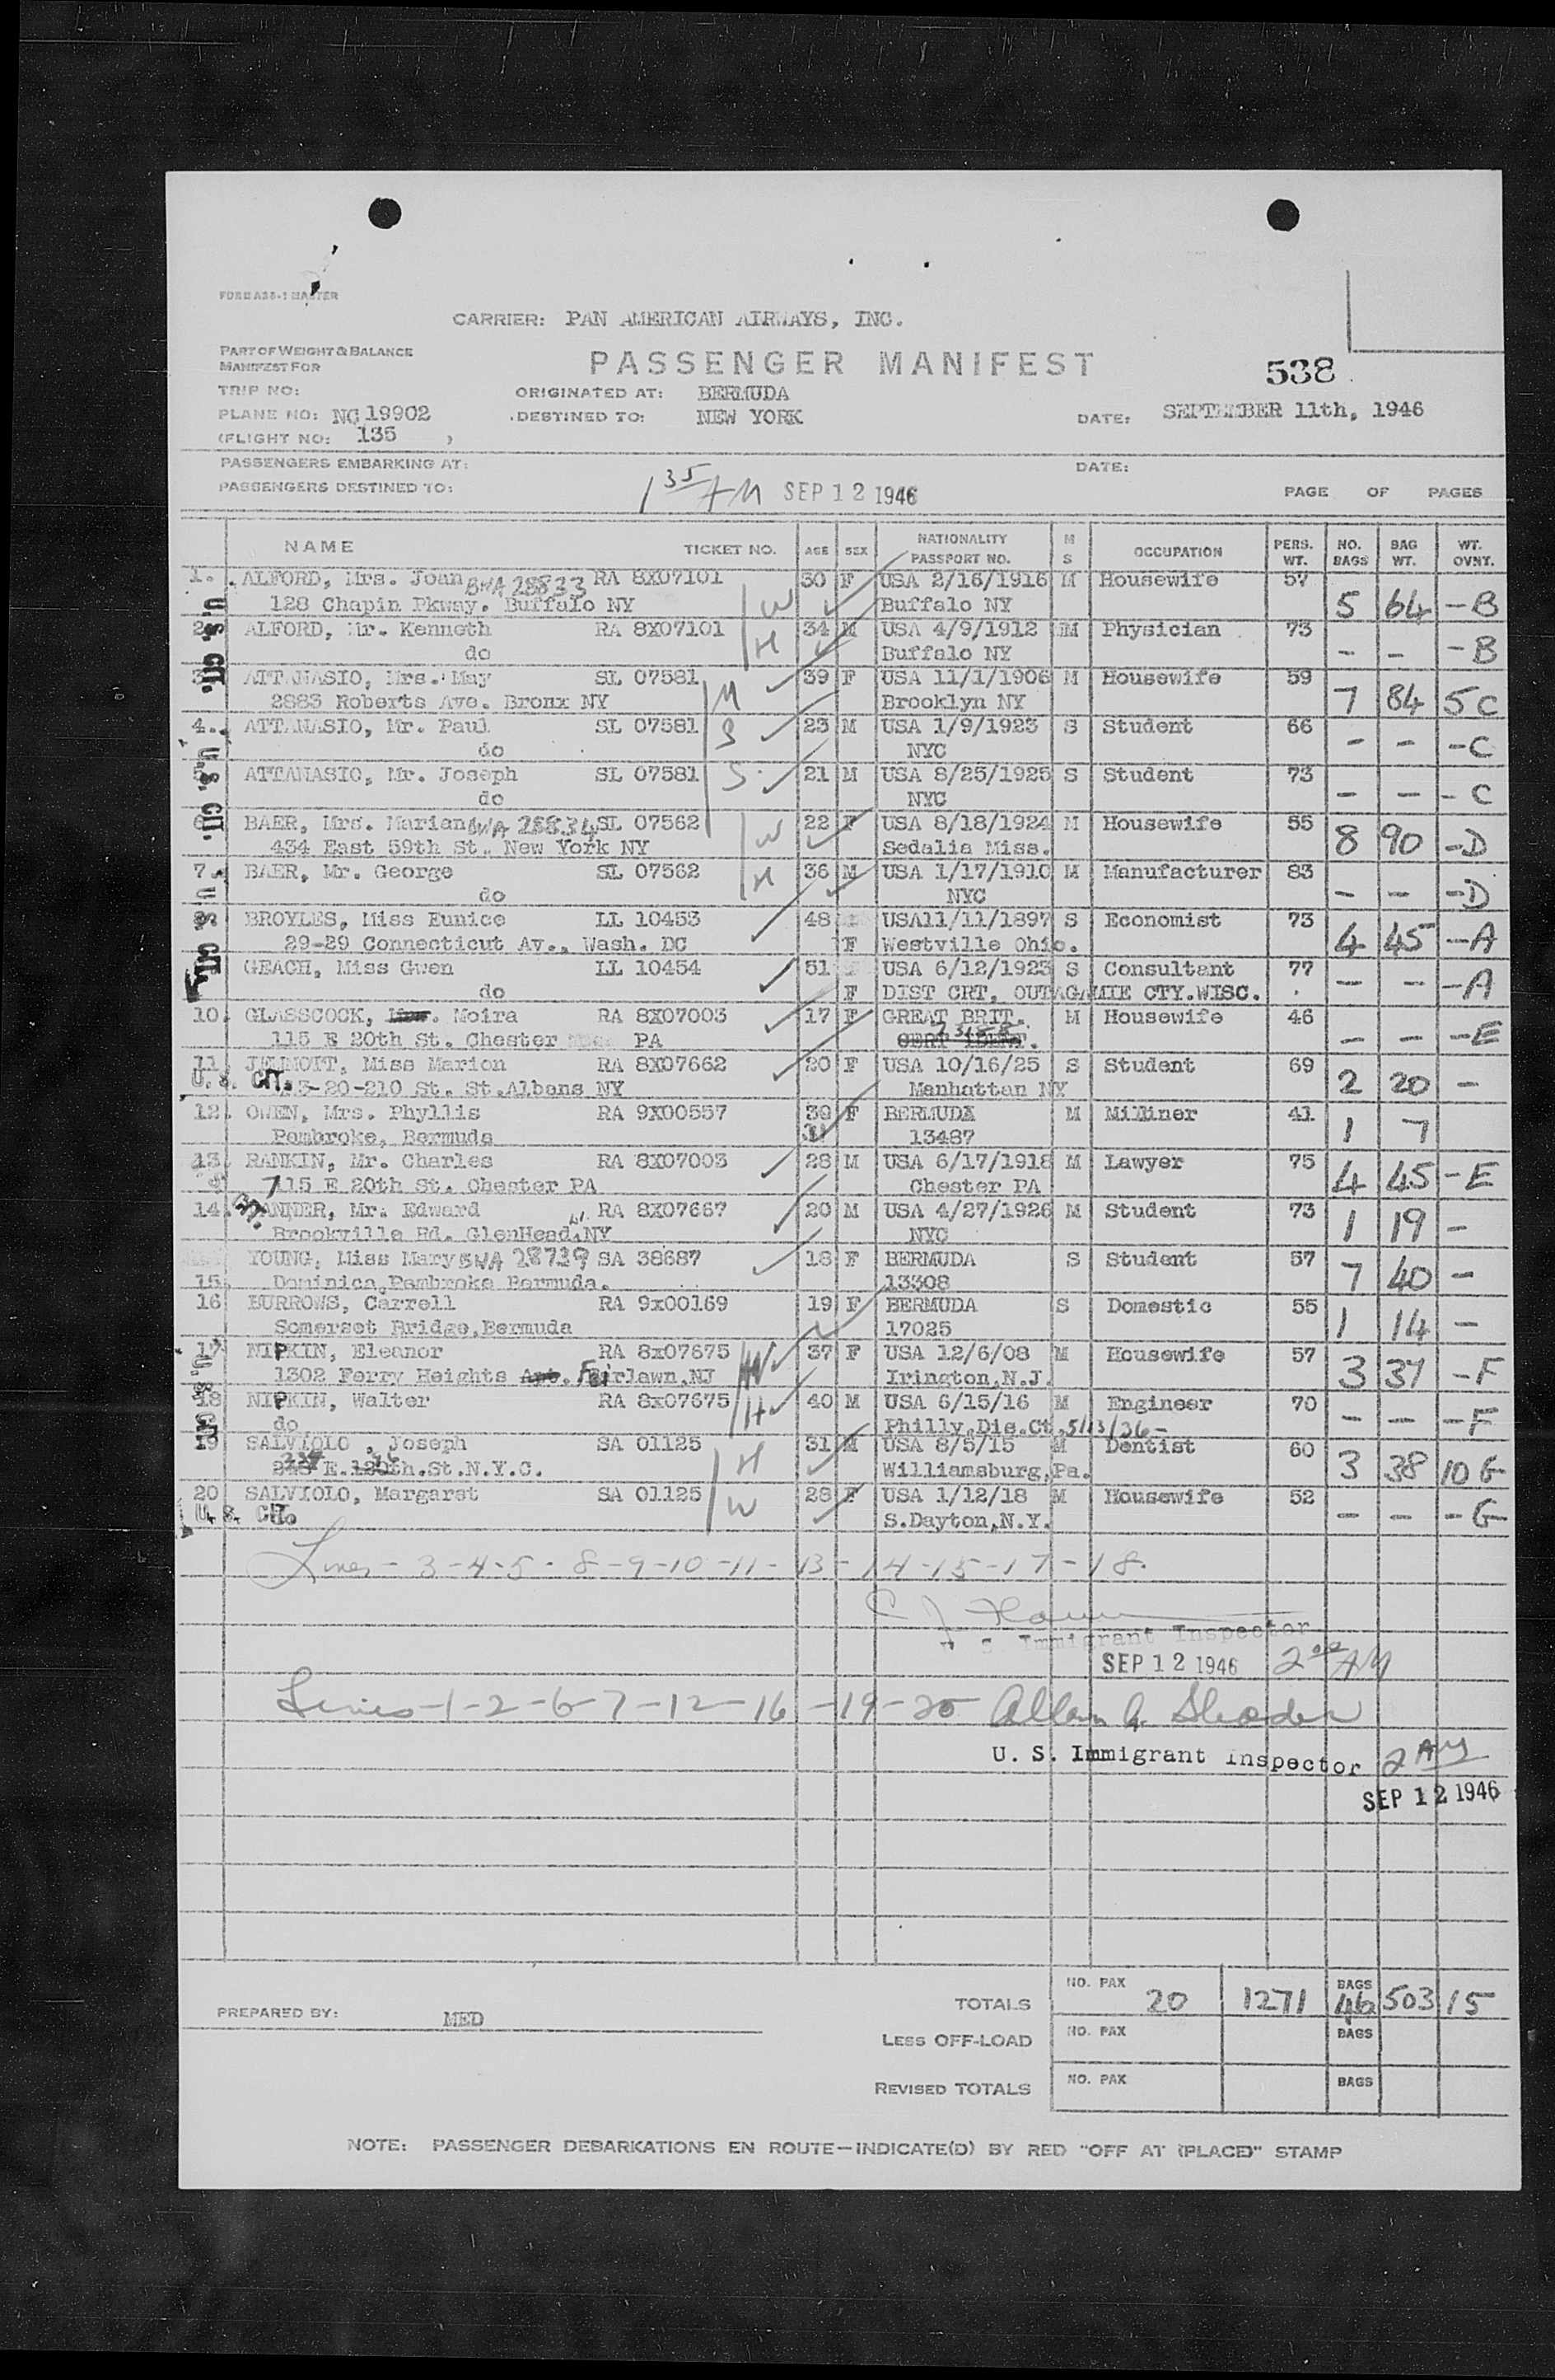 FORM A35-1 MASTER
CARRIER: PAN AMERICAN AIRWAYS, INC.
PART OF WEIGHT & BALANCE
MANIFEST FOR
PASSENGER MANIFEST
538
TRIP NO:
ORIGINATED AT: BERMUDA
PLANE NO: NC 19902
DESTINED TO: NEW YORK
DATE: SEPTEMBER 11th, 1946
(FLIGHT NO: 135 )
PASSENGERS EMBARKING AT:
DATE:
PASSENGERS DESTINED TO:
1 35 AM SEP 12 1946
PAGE OF PAGES
NAME TICKET NO. AGE SEX NATIONALITY PASSPORT NO. M S OCCUPATION PERS. WT. NO. BAGS BAG WT. WT. OVNT.
1. ALFORD, Mrs. Joan BWA 28833 RA 8X07101 W 30 F USA 2/16/1916 M Housewife 57
128 Chapin Pkway. Buffalo NY Buffalo NY 5 64 -B
2. ALFORD, Mr. Kenneth RA 8X07101 H 34 M USA 4/9/1912 M Physician 73
do Buffalo NY - - -B
3 ATTANASIO, Mrs. May SL 07581 M 39 F USA 11/1/1906 M Housewife 59
2883 Roberts Ave. Bronx NY Brooklyn NY 7 84 5C
4. ATTANASIO, Mr. Paul SL 07581 S 23 M USA 1/9/1923 S Student 66
do NYC - - -C
5 ATTANASIO, Mr. Joseph SL 07581 S 21 M USA 8/25/1925 S Student 73
do NYC - - -C
6 BAER, Mrs. Marian BWA 28834 SL 07562 W 22 F USA 8/18/1924 M Housewife 55
434 East 59th St. New York NY Sedalia Miss. 8 90 -D
7. BAER, Mr. George SL 07562 H 36 M USA 1/17/1910 M Manufacturer 83
do NYC - - -D
8 BROYLES, Miss Eunice LL 10453 48 F USA11/11/1897 S Economist 73
29-29 Connecticut Av., Wash. DC Westville Ohio. 4 45 -A
GEACH, Miss Gwen LL 10454 51 F USA 6/12/1923 S Consultant 77
do DIST CRT, OUTAGAMIE CTY.WISC. - - -A
10. GLASSCOCK, Moira RA 8X07003 17 F GREAT BRIT. M Housewife 46
115 E 20th St. Chester PA - - -E
11 Miss Marion RA 8X07662 20 F USA 10/16/25 S Student 69
U. S. CIT. -20-210 St. St.Albans NY Manhattan NY 2 20 -
12. OWEN, Mrs. Phyllis RA 9X00557 39 F BERMUDA M Milliner 41
Pembroke, Bermuda 13487 1 7
13. RANKIN, Mr. Charles RA 8X07003 28 M USA 6/17/1918 M Lawyer 75
115 E 20th St. Chester PA Chester PA 4 45 -E
14. Mr. Edward RA 8X07667 20 M USA 4/27/1926 M Student 73
Brookville Rd. GlenHead, NY NYC 1 19 -
YOUNG, Miss Mary BWA 28739 SA 38687 18 F BERMUDA S Student 57
15. Dominica, Pembroke Bermuda. 13308 7 40 -
16 BURROWS, Carroll RA 9x00169 19 F BERMUDA S Domestic 55
Somerset Bridge, Bermuda 17025 1 14 -
17 NIPKIN, Eleanor RA 8x07675 W 37 F USA 12/6/08 M Housewife 57
1302 Ferry Heights Fairlawn, NJ Irington, N.J. 3 37 -F
18 NIPKIN, Walter RA 8x07675 H 40 M USA 6/15/16 M Engineer 70
do Philly, Dis. Ct. 5/13/36- - - -F
19 SALVIOLO , Joseph SA 01125 H 31 M USA 8/5/15 M Dentist 60
E. th. St. N.Y.C. Williamsburg, Pa. 3 38 10 G
20 SALVIOLO, Margaret SA 01125 W 28 F USA 1/12/18 M Housewife 52
U. S. CIT. S.Dayton, N.Y. - - -G
Lines - 3-4-5-8-9-10-11-13-14-15-17-18.
U. S. Immigrant Inspector
SEP 12 1946 2 00 AM
Lines-1-2-6-7-12-16-19-20
U. S. Immigrant Inspector 2 AM
SEP 12 1946
TOTALS NO. PAX 20 1271 BAGS 46 503 15
PREPARED BY: MED
LESS OFF-LOAD NO. PAX BAGS
REVISED TOTALS NO. PAX BAGS
NOTE: PASSENGER DEBARKATIONS EN ROUTE—INDICATE(D) BY RED "OFF AT (PLACE)" STAMP